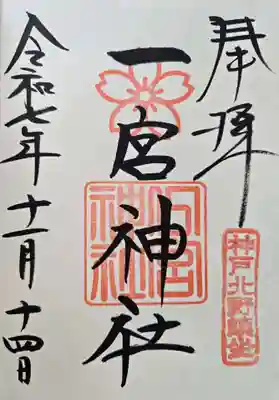 奉拝
神戸北野鎮座
一宮神社
一宮神社
令和七年十一月十四日